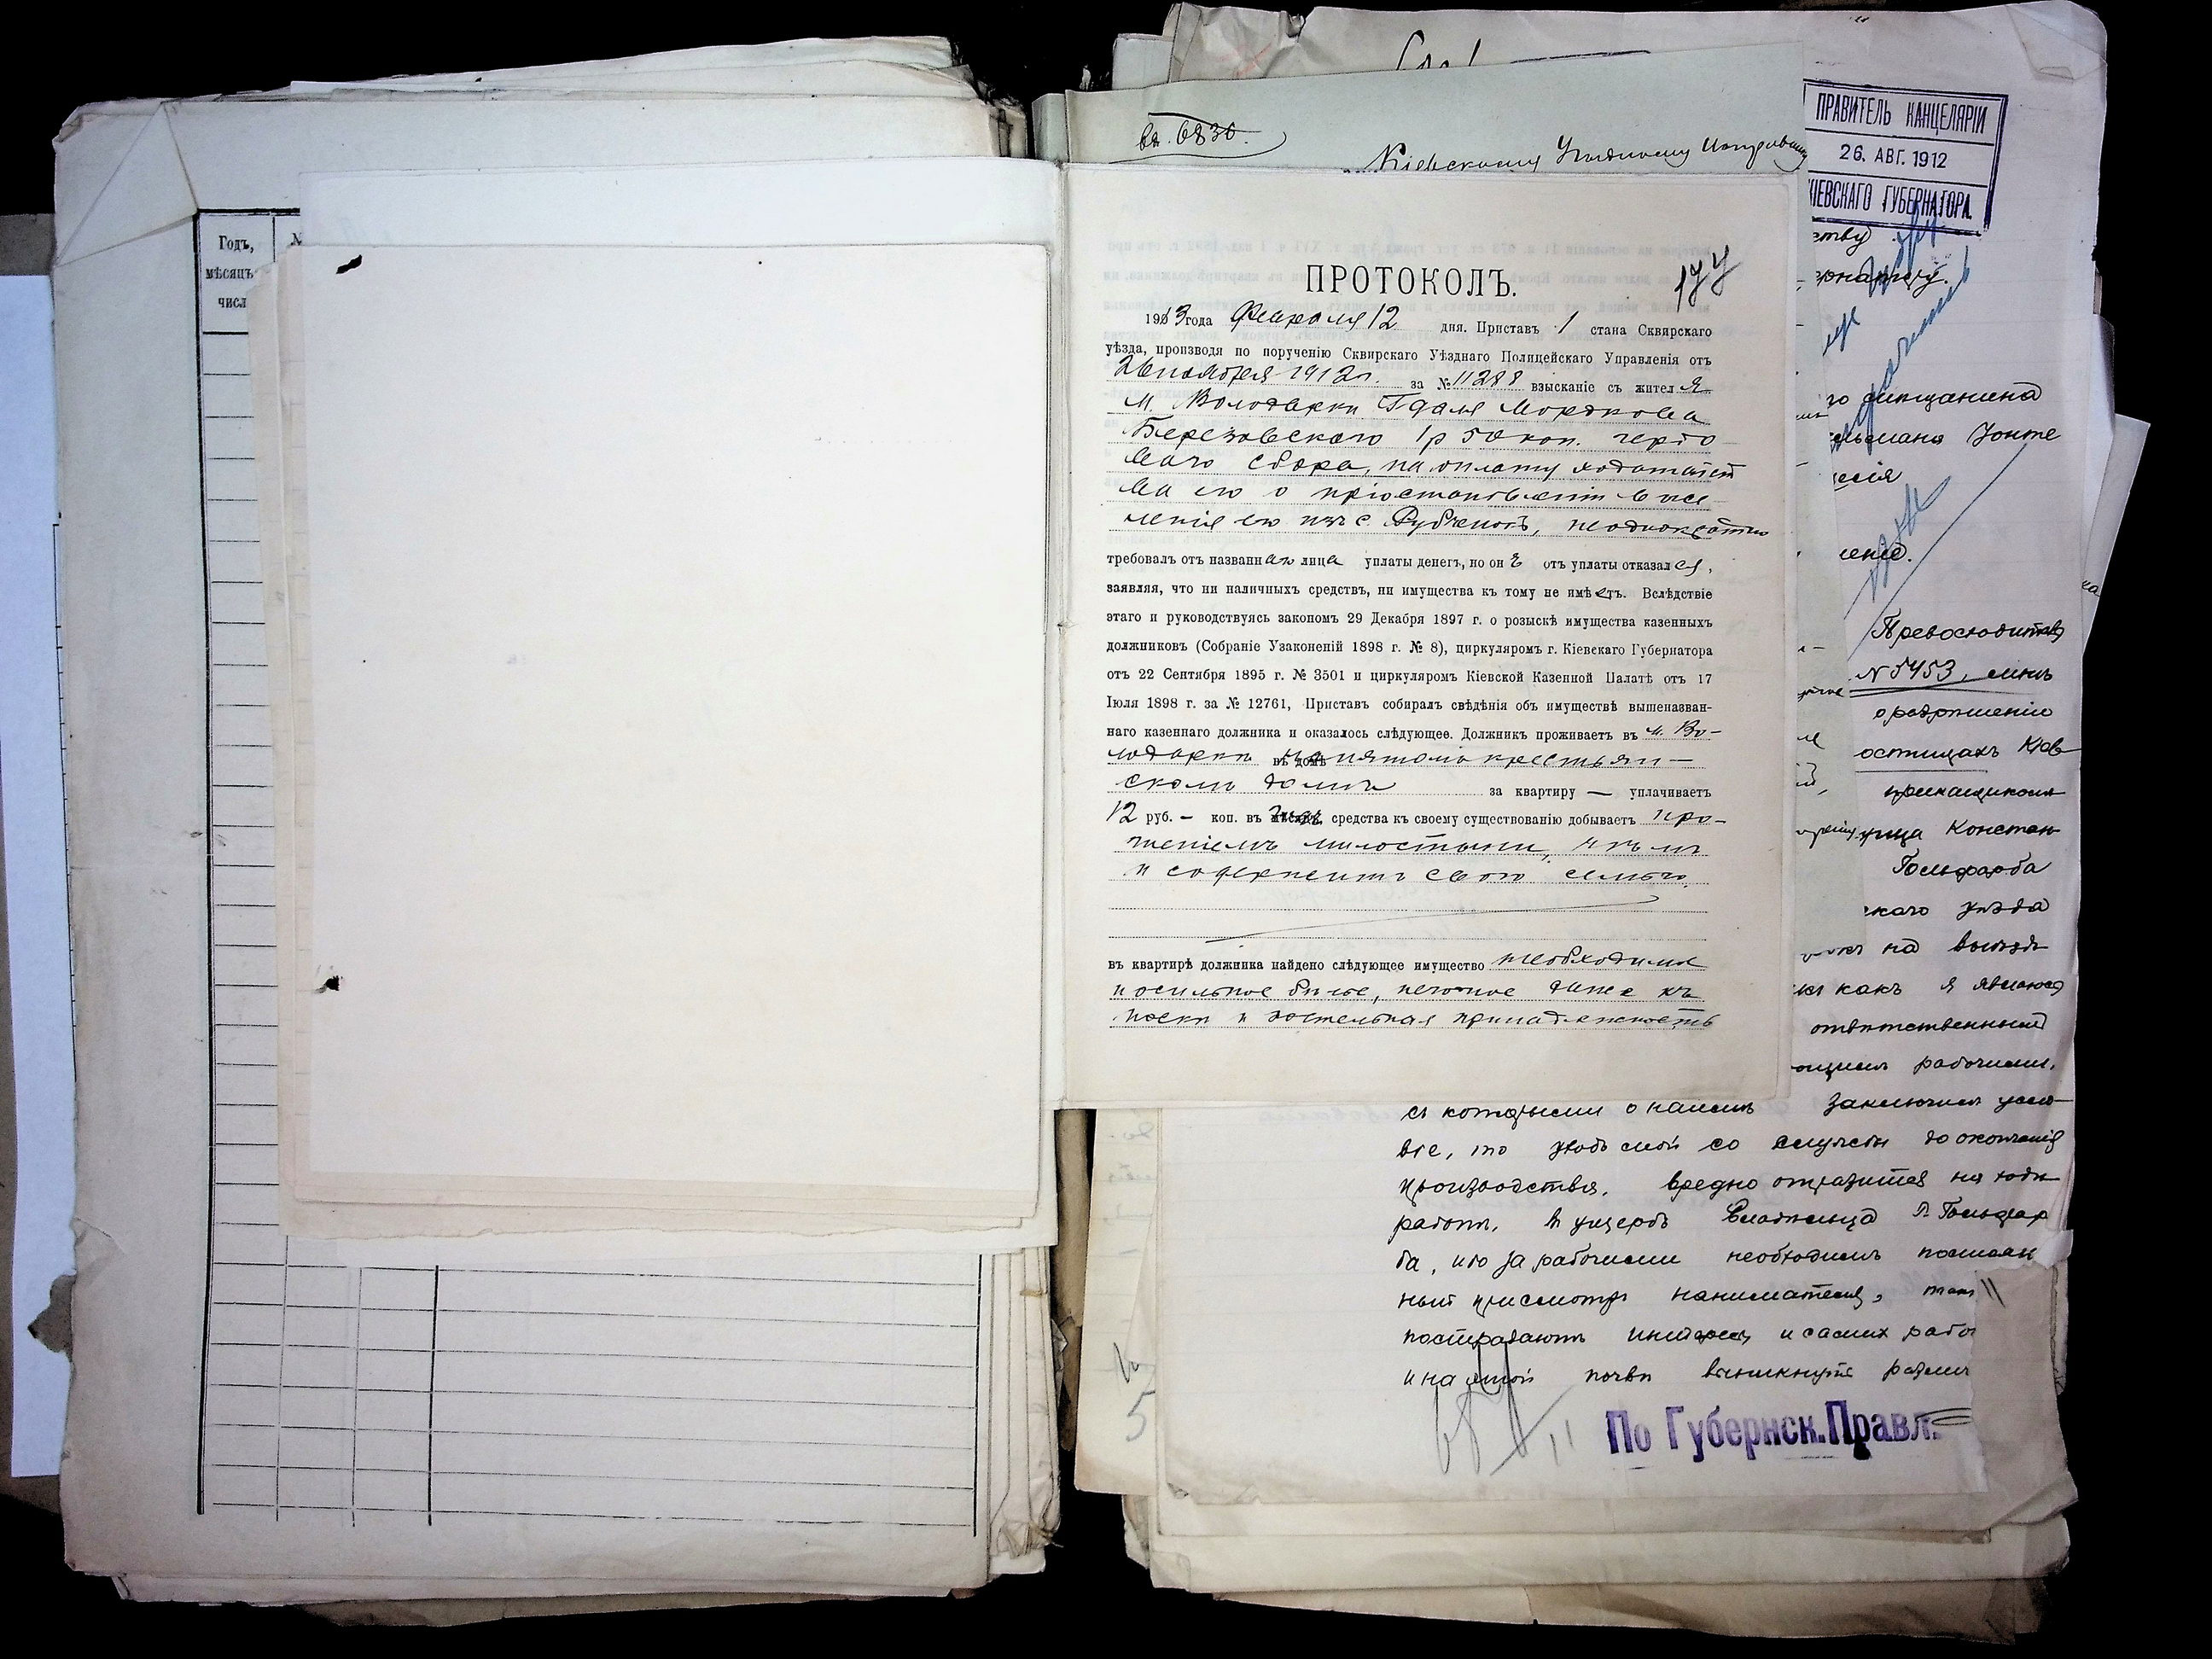 Годъ,
мѣсяцъ
числ
вх. 6836.
Кіевскому
ПРАВИТЕЛЬ КАНЦЕЛЯРІИ
26. АВГ. 1912
КІЕВСКАГО ГУБЕРНАТОРА.
177
ПРОТОКОЛЪ.
1913 года Февраля 12 дня. Приставъ 1 стана Сквирскаго
уѣзда, производя по порученію Сквирскаго Уѣзднаго Полицейскаго Управленія отъ
26 ноября 1912 г. за № 11288 взысканіе съ жителя
м. Володарки Гдаля Мордкова
Березовскаго 1 р 50 коп. гербо
ваго сбора, на оплату ходатайст
ва его о пріостановленіи высе
ленія его изъ с Рубченокъ, неоднократно
требовалъ отъ названнаго лица уплаты денегъ, но онъ отъ уплаты отказался,
заявляя, что ни наличныхъ средствъ, ни имущества къ тому не имѣетъ. Вслѣдствіе
этаго и руководствуясь закономъ 29 Декабря 1897 г. о розыскѣ имущества казенныхъ
должниковъ (Собраніе Узаконеній 1898 г. № 8), циркуляромъ г. Кіевскаго Губернатора
отъ 22 Сентября 1895 г. № 3501 и циркуляромъ Кіевской Казенной Палатѣ отъ 17
Іюля 1898 г. за № 12761, Приставъ собиралъ свѣдѣнія объ имуществѣ вышеназван-
наго казеннаго должника и оказалось слѣдующее. Должникъ проживаетъ въ м. Во-
лодарки въ нанятомъ крестьян-
скомъ домѣ за квартиру — уплачиваетъ
12 руб. - коп. въ годъ средства къ своему существованію добываетъ про-
шеніемъ милостыни, чѣмъ
и содержитъ свою семью.
въ квартирѣ должника найдено слѣдующее имущество необходимое
носильное бѣлье, негодное даже къ
носкѣ и постельная принадлежность
го мѣщанина
Превосходитель
№ 5453, мнѣ
о разрѣшеніи
Констан
Гольфарба
скаго уѣзда
на выѣздъ
какъ я являюсь
отвѣтственный
рабочими,
съ которыми о наемѣ заключилъ усло
віе, то уходъ мой со службы до окончанія
производства, вредно отразится на ходѣ
работъ, въ ущербъ Владѣльца Гольфар
ба, ибо за рабочими необходимъ постоян
ный присмотръ нанимателя,
пострадаютъ интересы и самих рабо
и на этой почвѣ возникнутъ
По Губернск.Правл.